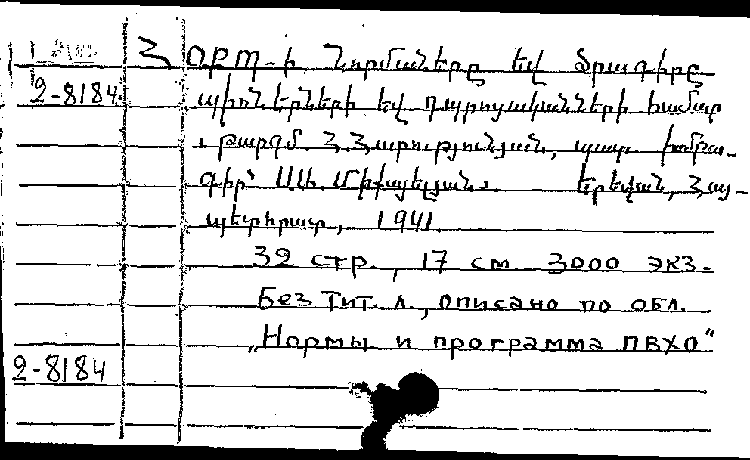 Հ ՕՊՊ-ի Նորմաները եվ ծրագիրը
2-8184 պիոներների եվ դպրոցականների համար
։ թարգմ. Հ. Հարությունյան, պատ. խմբա-
գիր՝ Ս. Միքայելյան։ Երեվան, Հայ-
պետհրատ, 1941.
32 стр., 17 см 3000 экз.
Без тит. л., описано по обл.
„Нормы и программа ПВХО“
2-8184